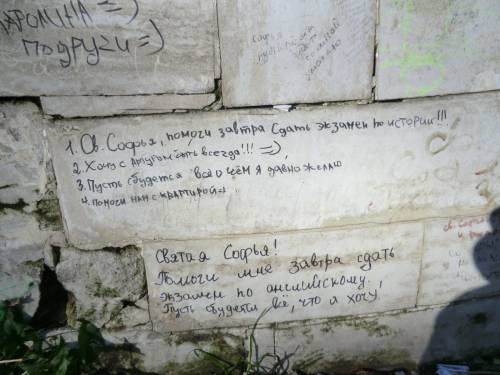 КАРОЛИНА =)
ПОДРУГИ =)
1. Св. Софья, помоги завтра сдать экзамен по истории!!!
2. Хочу с другом быть всегда!!! =)
3. Пусть сбудется всё о чём я давно желаю
4. Помоги нам с квартирой
Святая Софья!
Помоги мне завтра сдать
экзамен по английскому.
Пусть сбудется всё, что я хочу!